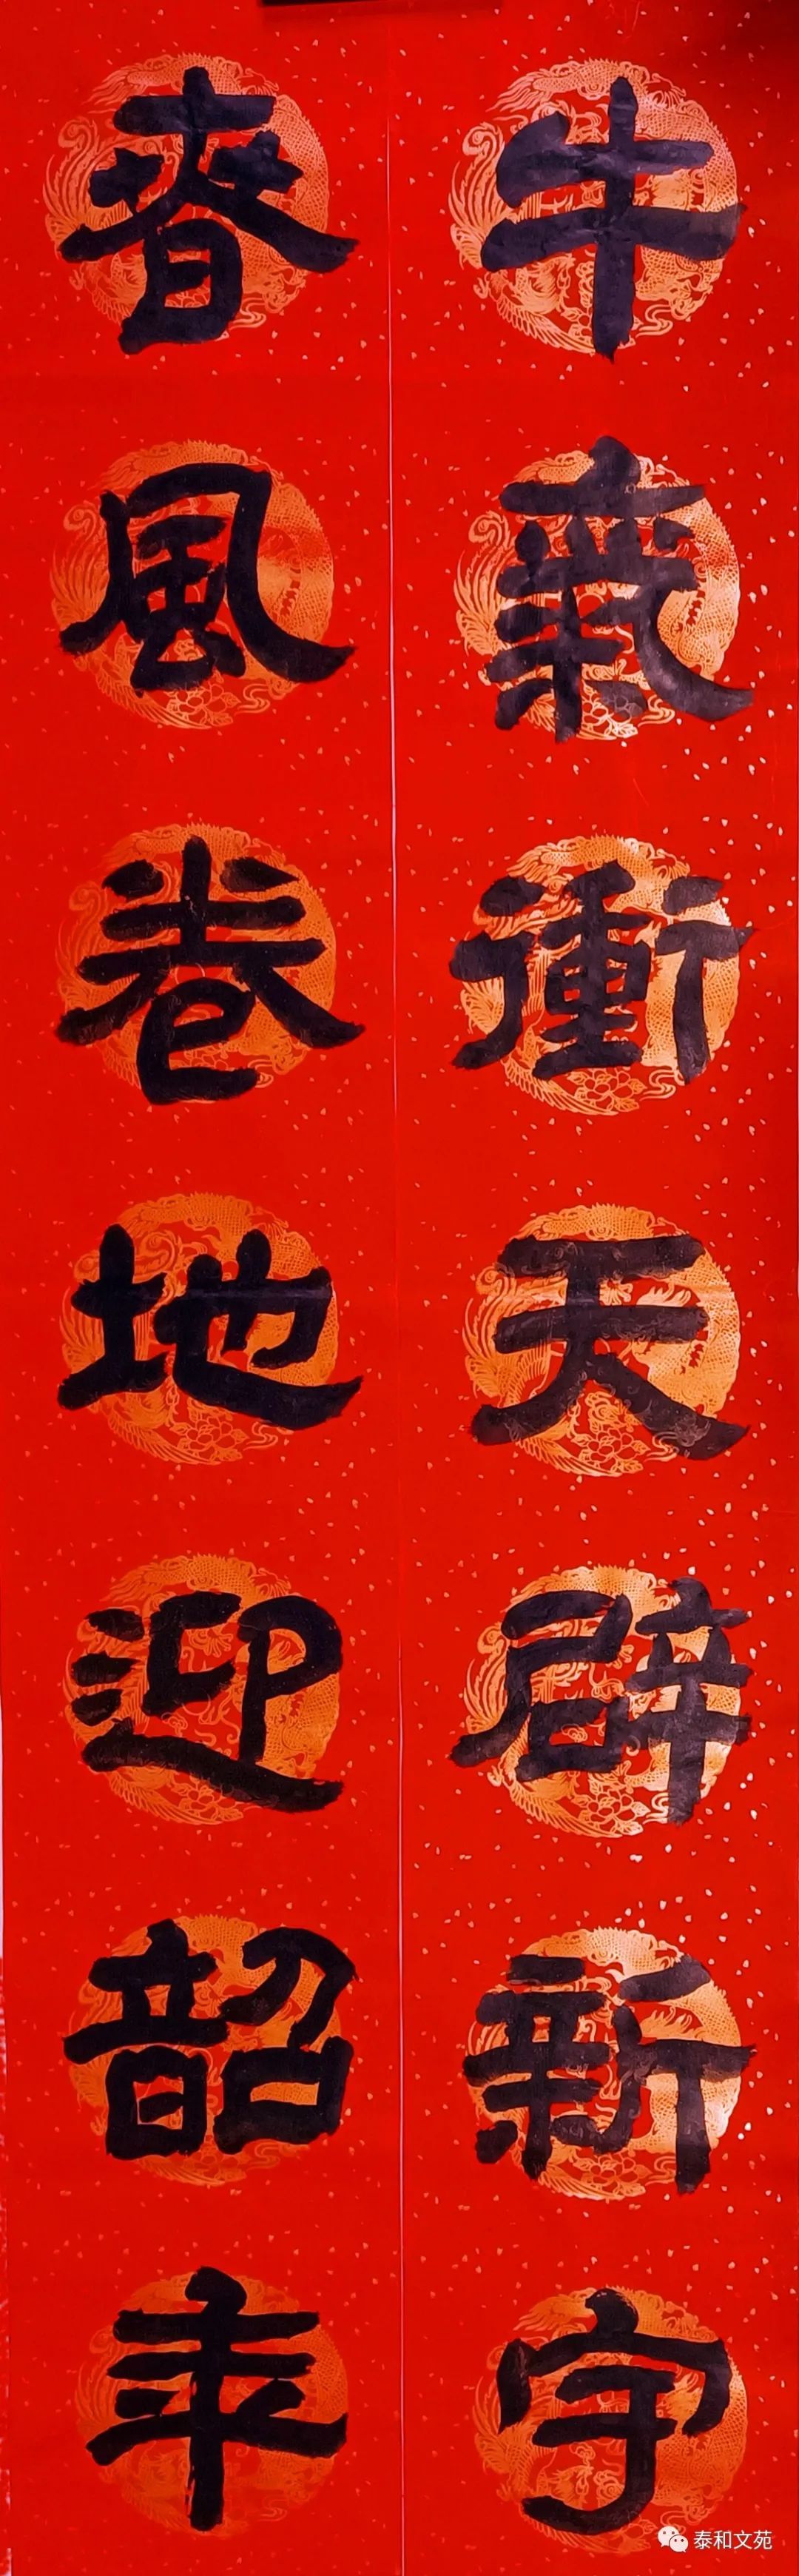 牛氣衝天辟新宇
春風卷地迎韶年
泰和文苑